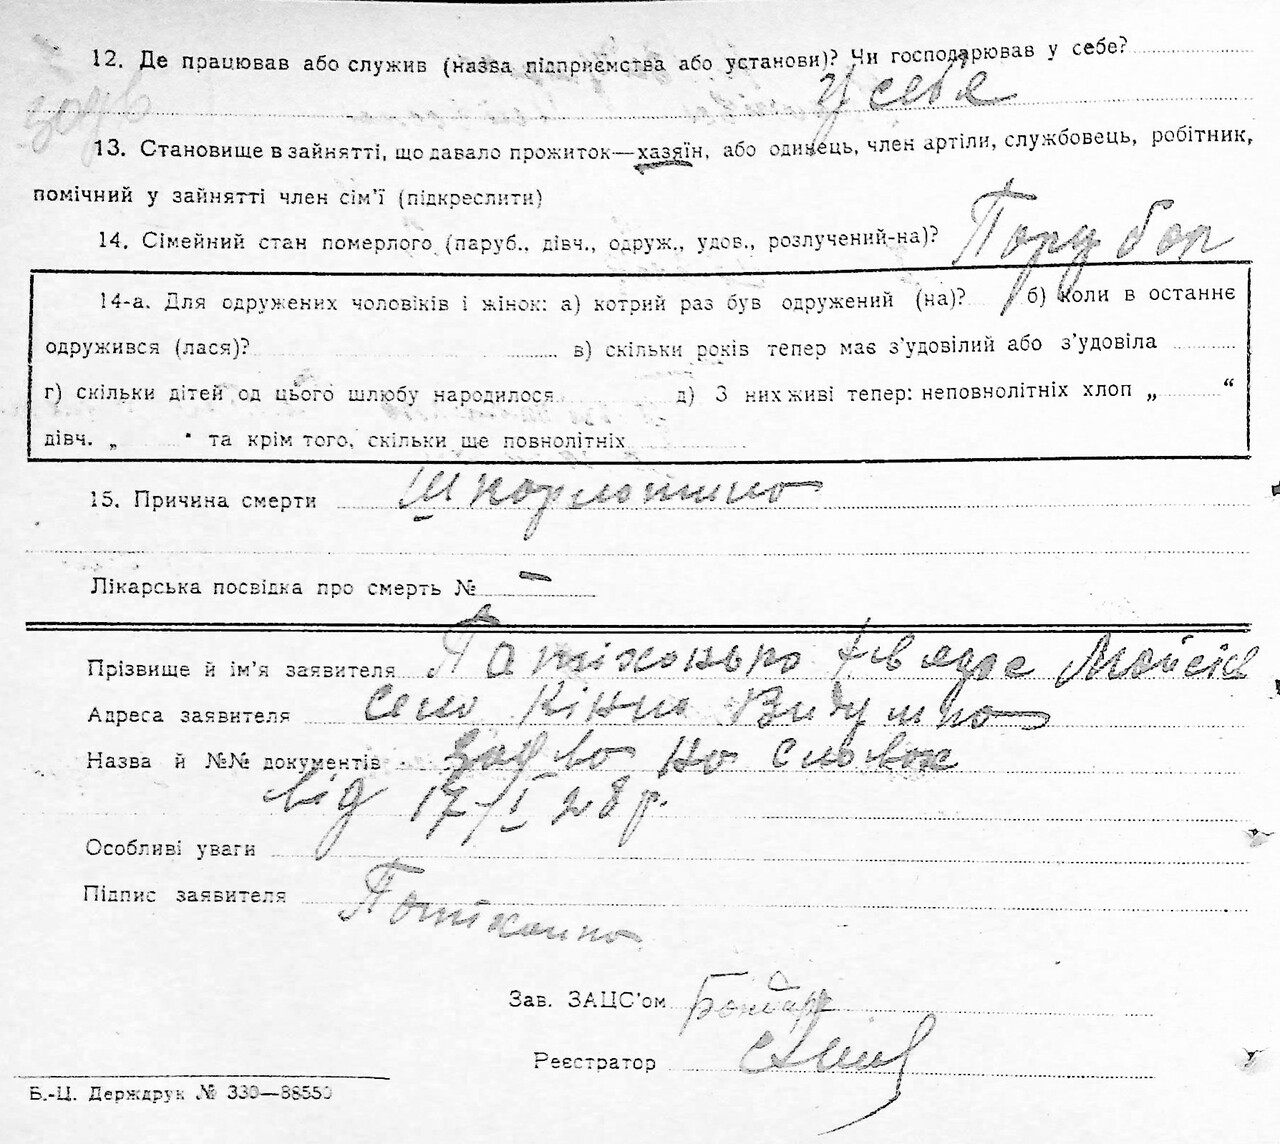 12. Де працював або служив (назва підприємства або установи)? Чи господарював у себе?
у себе
13. Становище в зайнятті, що давало прожиток—хазяїн, або одинець, член артіли, службовець, робітник,
помічний у зайнятті член сім'ї (підкреслити)
14. Сімейний стан померлого (паруб., дівч., одруж., удов., розлучений-на)?
14-а. Для одружених чоловіків і жінок: а) котрий раз був одружений (на)? б) коли в останнє
одружився (лася)? в) скільки років тепер має з'удовілий або з'удовіла
г) скільки дітей од цього шлюбу народилося д) З них живі тепер: неповнолітніх хлоп „ “
дівч. „ " та крім того, скільки ще повнолітніх
15. Причина смерти Шкорлотина
Лікарська посвідка про смерть № —
Прізвище й ім'я заявителя
Адреса заявителя село Кінш
Назва й №№ документів заява на словах
від 17/I 28 р.
Особливі уваги
Підпис заявителя
Зав. ЗАЦС'ом Бондар
Реєстратор
Б.-Ц. Держдрук № 330—88550